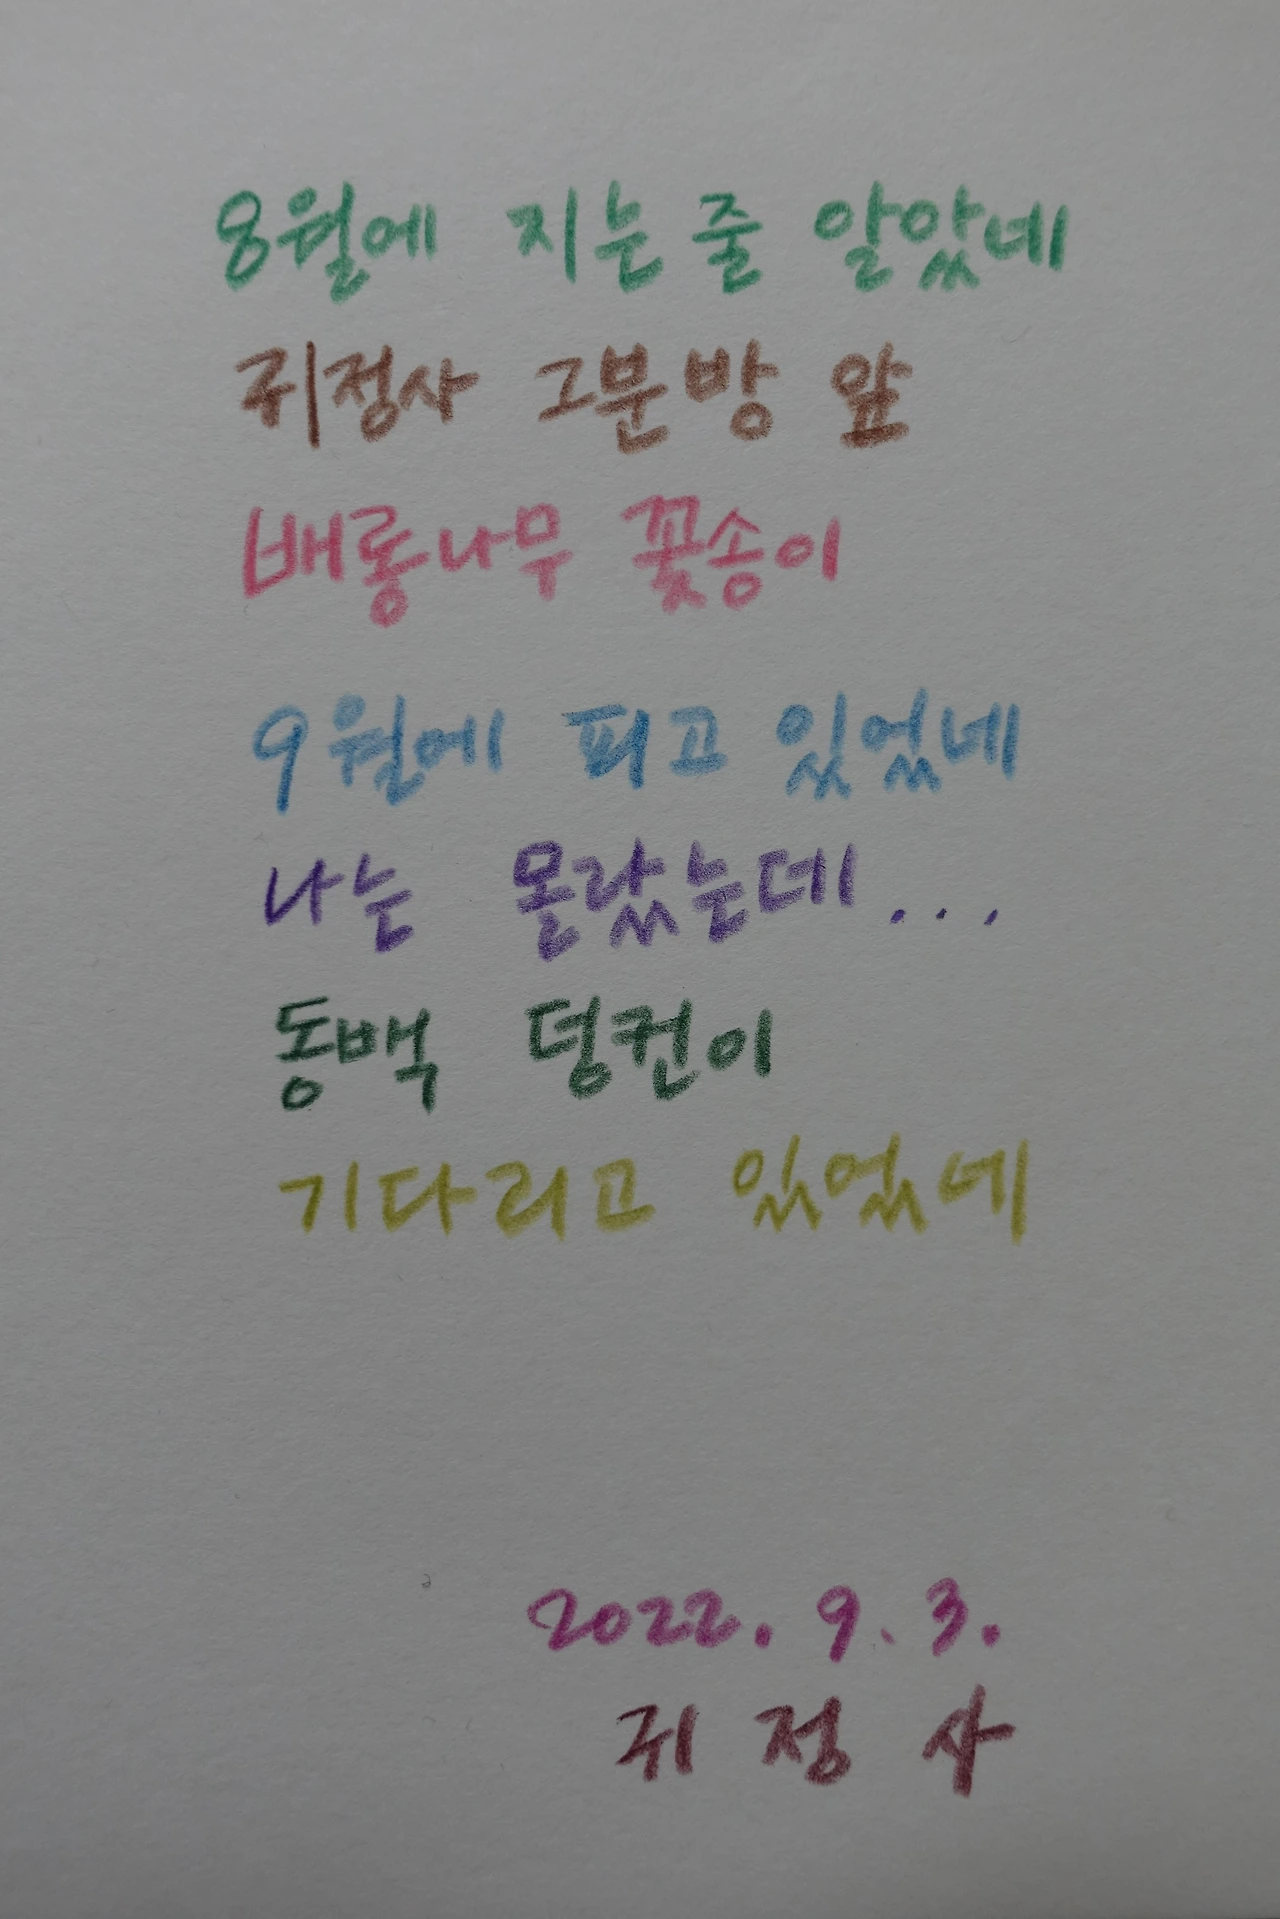 8월에 지는 줄 알았네
귀정사 그분 방 앞
배롱나무 꽃송이
9월에 피고 있었네
나는 몰랐는데...
동백 덩컨이
기다리고 있었네
2022. 9. 3.
귀 정 사